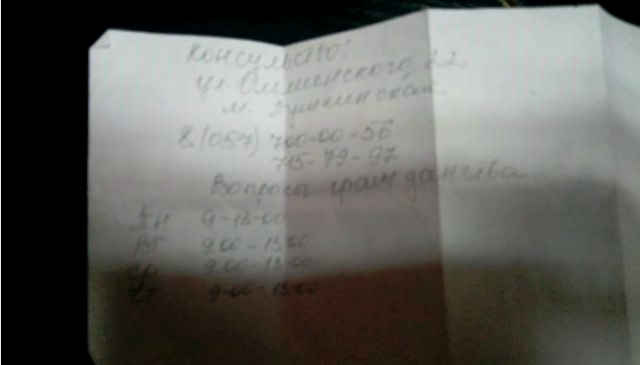 Консульство:
ул. Ольминского, 22
м. Пушкинская
8 (057) 700-00-56
715-79-97
Вопросы гражданства
ПН 9-13-00
ВТ 9.00-13.00
СР 9.00-13.00
ЧТ 9-00-13-00